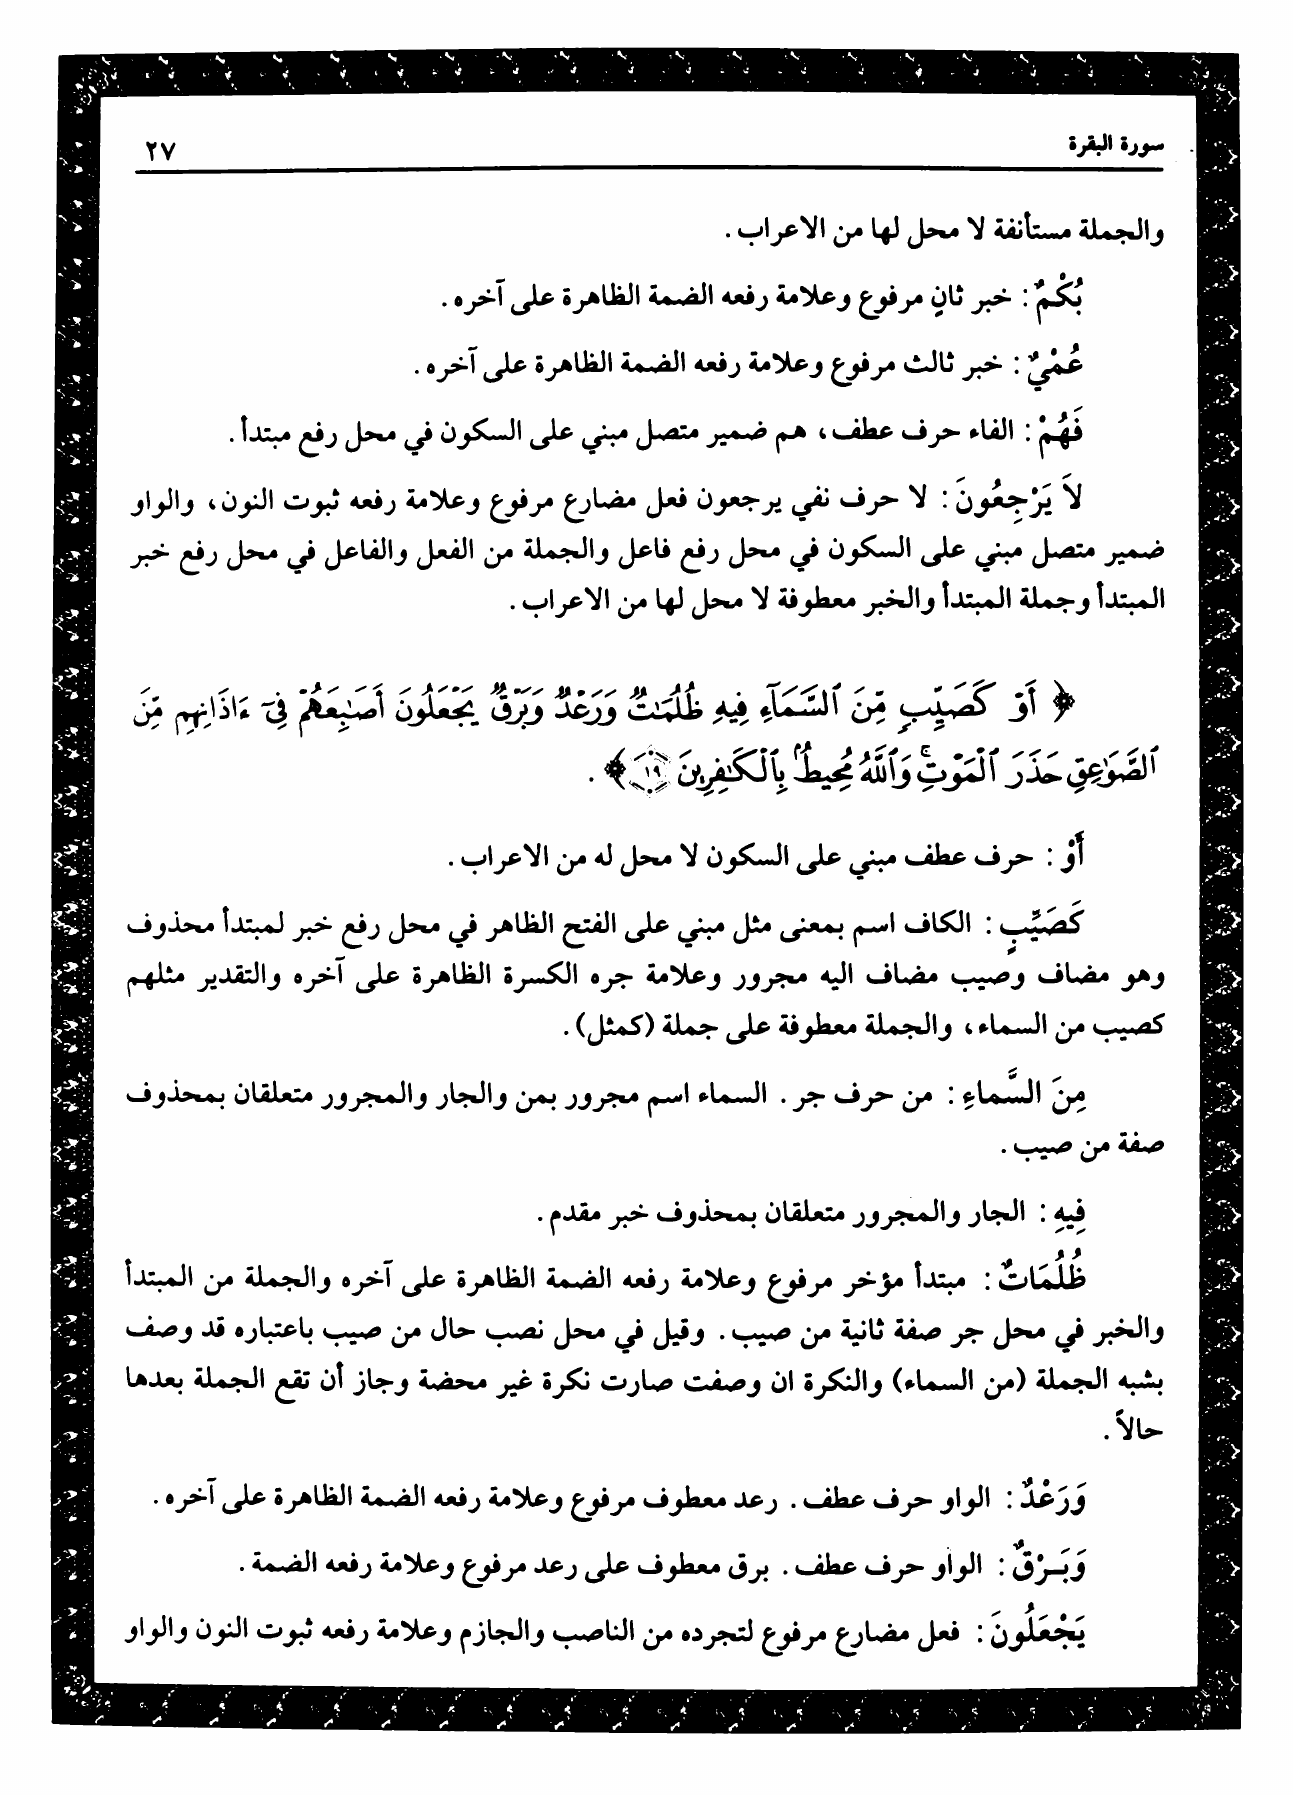 سورة البقرة ٢٧
والجملة مستأنفة لا محل لها من الاعراب.
بُكْمٌ: خبر ثانٍ مرفوع وعلامة رفعه الضمة الظاهرة على آخره.
عُمْيٌ: خبر ثالث مرفوع وعلامة رفعه الضمة الظاهرة على آخره.
فَهُمْ: الفاء حرف عطف، هم ضمير متصل مبني على السكون في محل رفع مبتدأ.
لاَ يَرْجِعُونَ: لا حرف نفي يرجعون فعل مضارع مرفوع وعلامة رفعه ثبوت النون، والواو
ضمير متصل مبني على السكون في محل رفع فاعل والجملة من الفعل والفاعل في محل رفع خبر
المبتدأ وجملة المبتدأ والخبر معطوفة لا محل لها من الاعراب.
﴿ أَوْ كَصَيِّبٍ مِّنَ ٱلسَّمَآءِ فِيهِ ظُلُمَٰتٌ وَرَعْدٌ وَبَرْقٌ يَجْعَلُونَ أَصَٰبِعَهُمْ فِىٓ ءَاذَانِهِم مِّنَ
ٱلصَّوَٰعِقِ حَذَرَ ٱلْمَوْتِۚ وَٱللَّهُ مُحِيطٌۢ بِٱلْكَٰفِرِينَ ١٩ ﴾.
أَوْ: حرف عطف مبني على السكون لا محل له من الاعراب.
كَصَيِّبٍ: الكاف اسم بمعنى مثل مبني على الفتح الظاهر في محل رفع خبر لمبتدأ محذوف
وهو مضاف وصيب مضاف اليه مجرور وعلامة جره الكسرة الظاهرة على آخره والتقدير مثلهم
كصيب من السماء، والجملة معطوفة على جملة (كمثل).
مِنَ السَّماءِ: من حرف جر. السماء اسم مجرور بمن والجار والمجرور متعلقان بمحذوف
صفة من صيب.
فِيهِ: الجار والمجرور متعلقان بمحذوف خبر مقدم.
ظُلُمَاتٌ: مبتدأ مؤخر مرفوع وعلامة رفعه الضمة الظاهرة على آخره والجملة من المبتدأ
والخبر في محل جر صفة ثانية من صيب. وقيل في محل نصب حال من صيب باعتباره قد وصف
بشبه الجملة (من السماء) والنكرة ان وصفت صارت نكرة غير محضة وجاز أن تقع الجملة بعدها
حالاً.
وَرَعْدٌ: الواو حرف عطف. رعد معطوف مرفوع وعلامة رفعه الضمة الظاهرة على آخره.
وَبَـرْقٌ: الواو حرف عطف. برق معطوف على رعد مرفوع وعلامة رفعه الضمة.
يَجْعَلُونَ: فعل مضارع مرفوع لتجرده من الناصب والجازم وعلامة رفعه ثبوت النون والواو